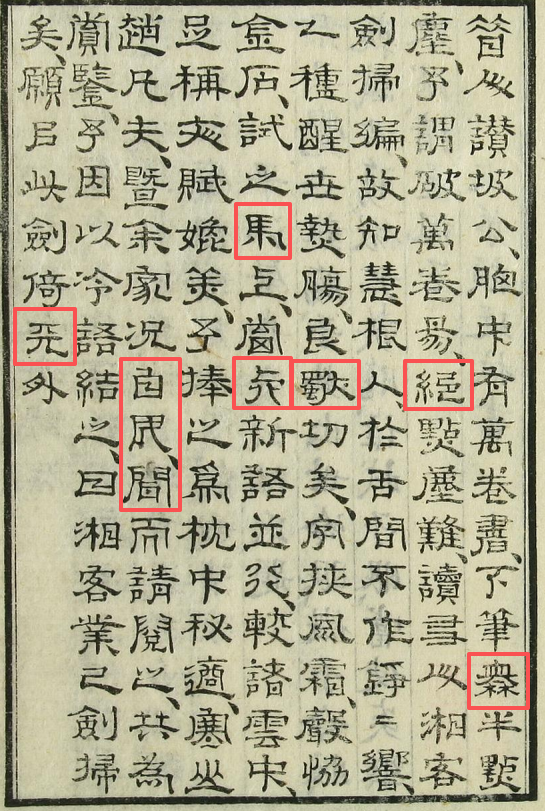 昔人讚坡公、胸中有萬卷書、下筆無半點
塵、予謂破萬卷易、絕點塵難、讀湘客
劍掃編、故知慧根人、於舌間不作錚〻響、
一種醒世熱腸、良款切矣、字挾風霜、聲協
金石、試之馬上、當亦新語並、較諸雲中、
足稱文賦媲美、予捧之為枕中秘、適寒坐
趙凡夫、暨余家況白民、聞而請閱之、共為
賞鑒、予因以冷語結之、曰湘客業已劍掃
矣、願以此劍倚天外